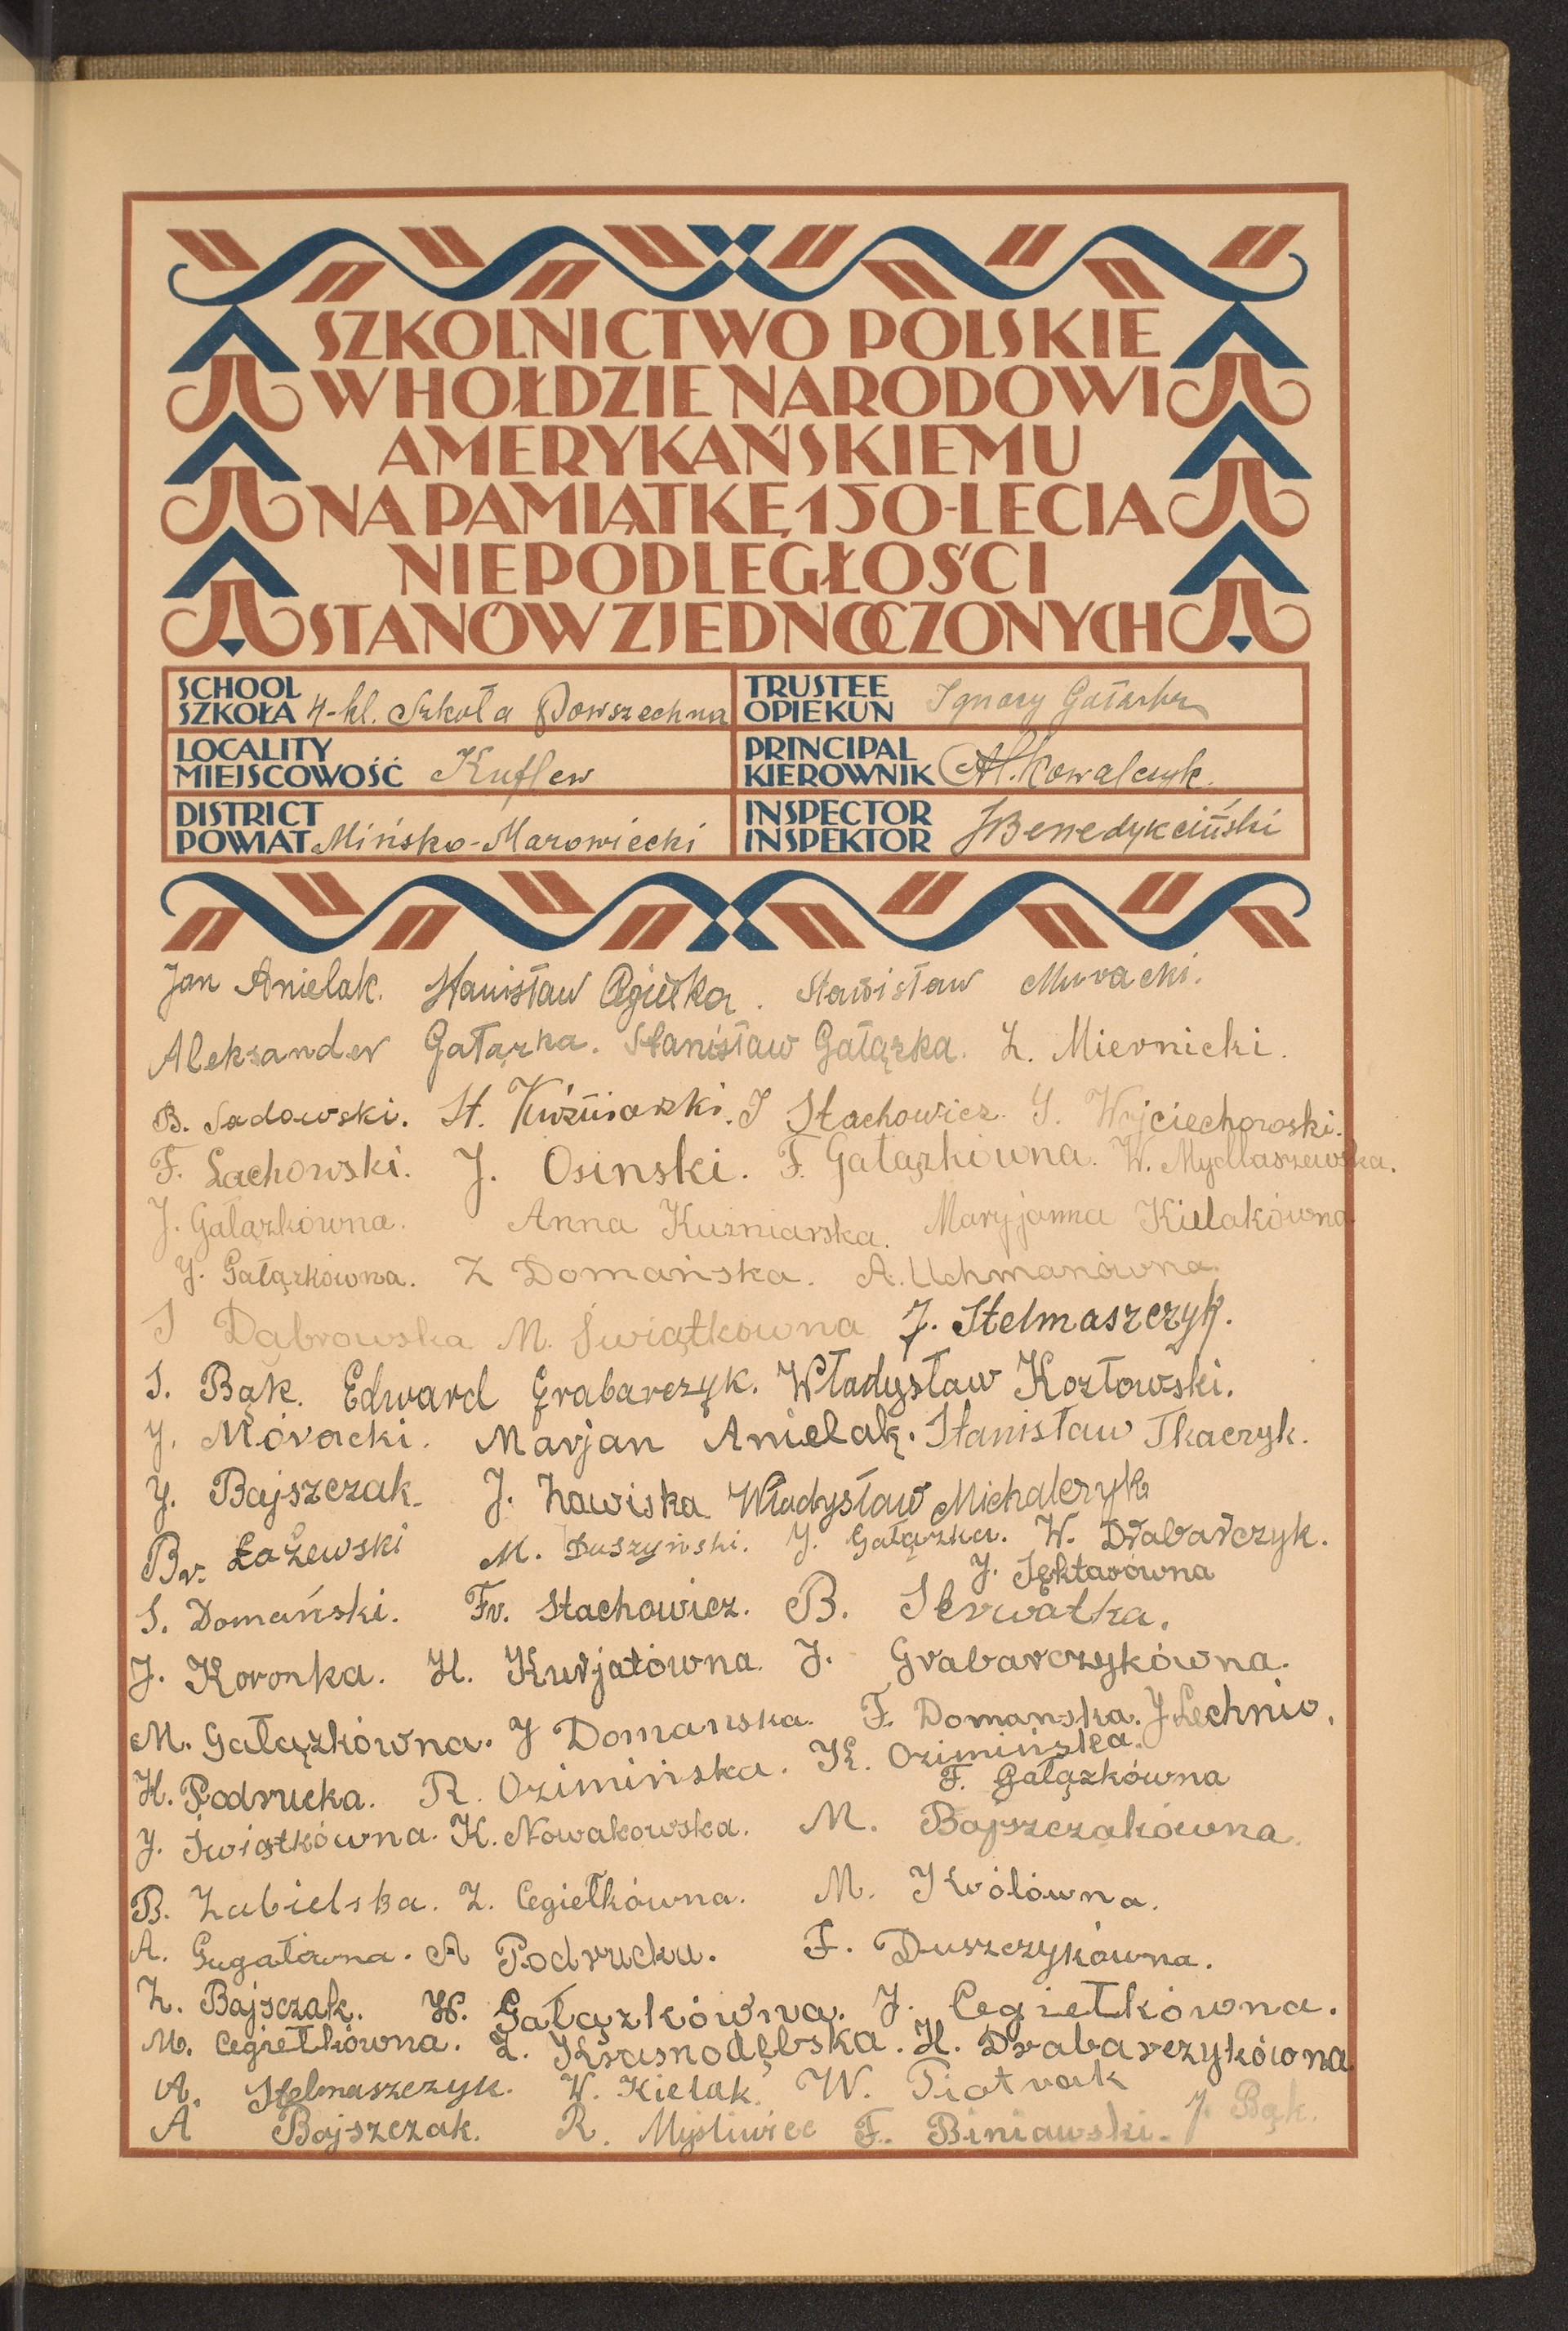 SZKOLNICTWO POLSKIE
W HOŁDZIE NARODOWI
AMERYKAŃSKIEMU
NA PAMIĄTKĘ 150-LECIA
NIEPODLEGŁOŚCI
STANÓW ZJEDNOCZONYCH
SCHOOL
SZKOŁA 4-kl. Szkoła Powszechna
TRUSTEE
OPIEKUN Ignacy
LOCALITY
MIEJSCOWOŚĆ Kuflew
PRINCIPAL
KIEROWNIK Al. Kowalczyk.
DISTRICT
POWIAT Mińsko-Mazowiecki
INSPECTOR
INSPEKTOR JBenedykciński
Jan Anielak. Stanisław Stanisław Muracki.
Aleksander Gałązka. Stanisław Gałązka. Z. Miernicki.
B. Sadowski. St. J Stachowicz. J. Wojciechowski.
F. Lachowski. J. Osinski. F. Gałązkówna. W. Mydlaszewska.
J. Gałązkówna. Anna Kuzniarska. Maryjanna Kielakówna
J. Gałązkówna. Z Domańska. A. Uchmanówna.
S Dąbrowska M. Świątkówna J. Stelmaszczyk.
S. Bąk. Edward Grabarczyk. Władysław Kozłowski.
J. Móracki. Marjan Anielak. Stanisław Tkaczyk.
J. Bajszczak. J. Zawiska. Władysław Michalczyk
Br. Łażewski M. Duszyński. J. Gałązka. W. Drabarczyk.
J. Sęktasówna
S. Domański. Fr. Stachowicz. B. Serwatka.
J. Koronka. H. Kurjatówna. J. Grabarczykówna.
M. Gałązkówna. J Domanska. F. Domanska. J Lechnio.
H. Podrucka. R. Ozimińska. K. Ozimińska.
F. Gałązkówna
J. Świątkówna. K. Nowakowska. M. Bajszczakówna.
B. Zabielska. Z. Cegiełkówna. M. Królówna.
A. Gugałówna. A Podrucku. F. Duszczykówna.
Z. Bajsczak. H. Gałązkówna. J. Cegiełkówna.
M. Cegiełkówna. Z. Krasnodębska. H. Drabarczykówna.
A. Stelmaszczyk. W. Kielak. W. Piotrak
A Bajszczak. R. Mysliwiec F. Biniawski. J. Bąk.